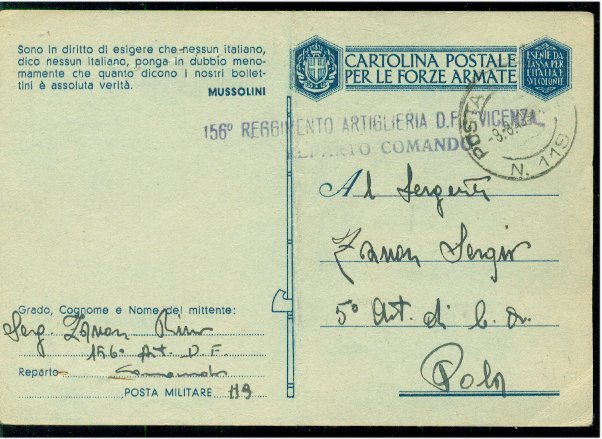 Sono in diritto di esigere che nessun italiano,
dico nessun italiano, ponga in dubbio meno-
mamente che quanto dicono i nostri bollet-
tini è assoluta verità.
MUSSOLINI
CARTOLINA POSTALE
PER LE FORZE ARMATE
ESENTE DA
TASSA PER
L'ITALIA E
156° REGGIMENTO ARTIGLIERIA D.F. VICENZA
REPARTO COMANDO
POSTA
N. 119
Al Sergente
Zanon Sergio
5° Art. di C. d.
Pola
Grado, Cognome e Nome del mittente:
Serg. Zanon
156° Art. D. F.
Reparto Comando
POSTA MILITARE 119